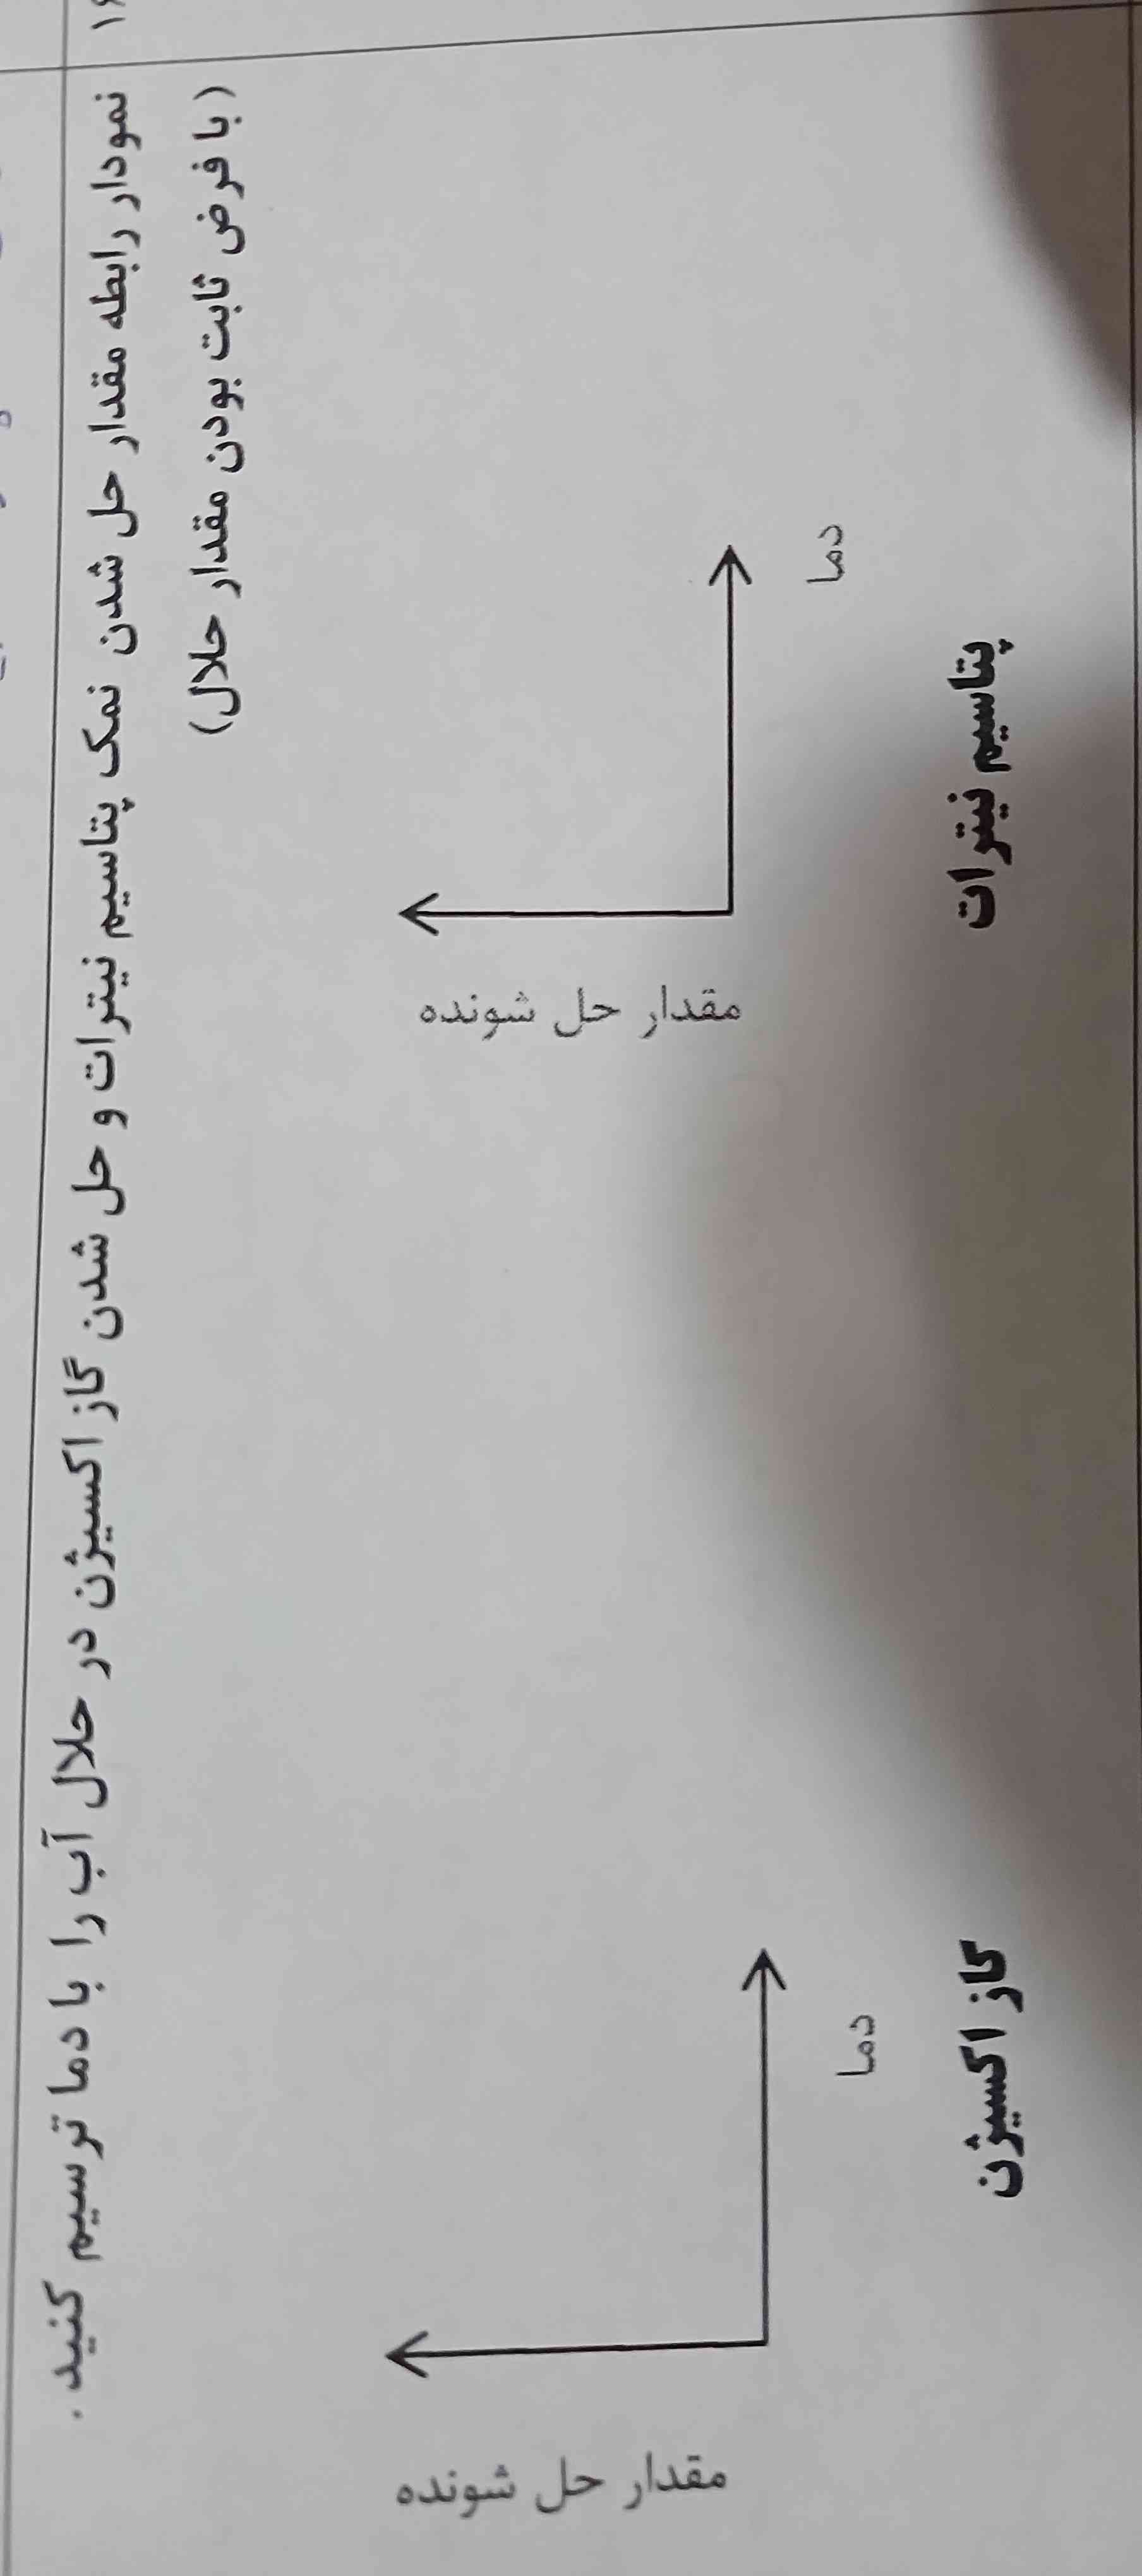 نمودار رابطه مقدار حل شدن نمک پتاسیم نیترات و حل شدن گاز اکسیژن در حلال آب را با دما ترسیم کنید.
(با فرض ثابت بودن مقدار حلال)
مقدار حل شونده
دما
پتاسیم نیترات
مقدار حل شونده
دما
گاز اکسیژن